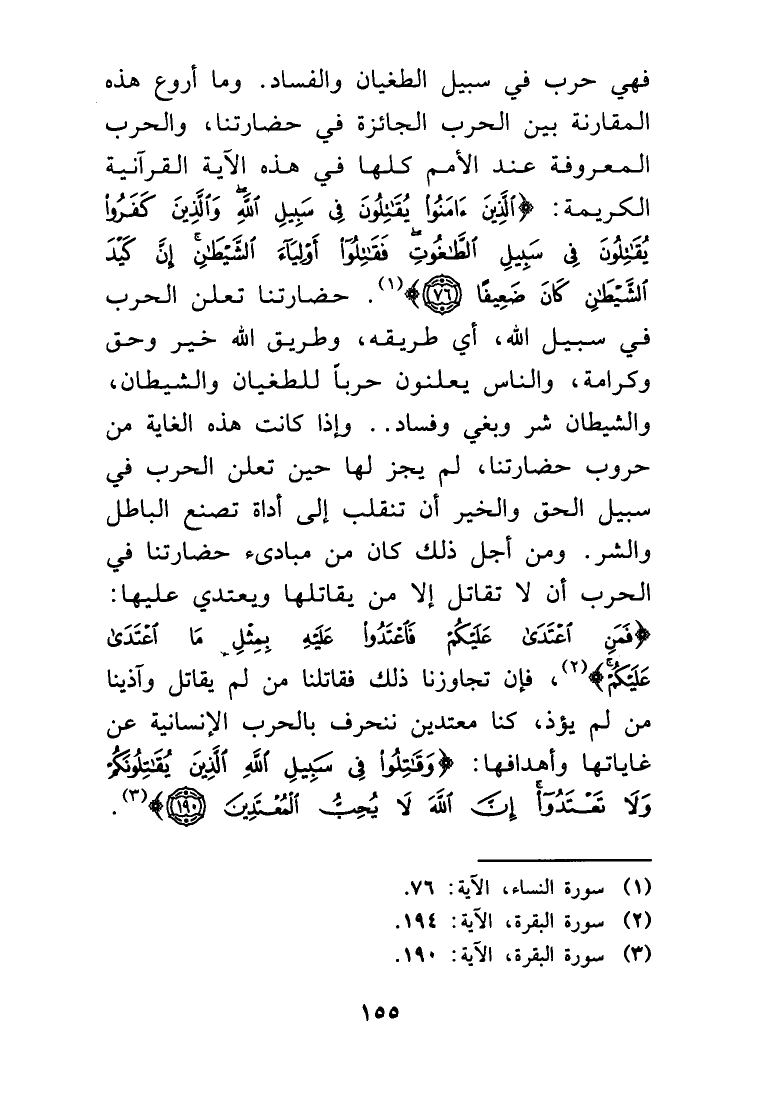 فهي حرب في سبيل الطغيان والفساد. وما أروع هذه
المقارنة بين الحرب الجائزة في حضارتنا، والحرب
المعروفة عند الأمم كلها في هذه الآية القرآنية
الكريمة: ﴿ٱلَّذِينَ ءَامَنُواْ يُقَٰتِلُونَ فِى سَبِيلِ ٱللَّهِۖ وَٱلَّذِينَ كَفَرُواْ
يُقَٰتِلُونَ فِى سَبِيلِ ٱلطَّٰغُوتِ فَقَٰتِلُوٓاْ أَوْلِيَآءَ ٱلشَّيْطَٰنِۖ إِنَّ كَيْدَ
ٱلشَّيْطَٰنِ كَانَ ضَعِيفًا ٧٦﴾(١). حضارتنا تعلن الحرب
في سبيل الله، أي طريقه، وطريق الله خير وحق
وكرامة، والناس يعلنون حرباً للطغيان والشيطان،
والشيطان شر وبغي وفساد.. وإذا كانت هذه الغاية من
حروب حضارتنا، لم يجز لها حين تعلن الحرب في
سبيل الحق والخير أن تنقلب إلى أداة تصنع الباطل
والشر. ومن أجل ذلك كان من مبادىء حضارتنا في
الحرب أن لا تقاتل إلا من يقاتلها ويعتدي عليها:
﴿فَمَنِ ٱعْتَدَىٰ عَلَيْكُمْ فَٱعْتَدُواْ عَلَيْهِ بِمِثْلِ مَا ٱعْتَدَىٰ
عَلَيْكُمْۚ﴾(٢)، فإن تجاوزنا ذلك فقاتلنا من لم يقاتل وآذينا
من لم يؤذ، كنا معتدين ننحرف بالحرب الإنسانية عن
غاياتها وأهدافها: ﴿وَقَٰتِلُواْ فِى سَبِيلِ ٱللَّهِ ٱلَّذِينَ يُقَٰتِلُونَكُمْ
وَلَا تَعْتَدُوٓاْۚ إِنَّ ٱللَّهَ لَا يُحِبُّ ٱلْمُعْتَدِينَ ١٩٠﴾(٣).
(١) سورة النساء، الآية: ٧٦.
(٢) سورة البقرة، الآية: ١٩٤.
(٣) سورة البقرة، الآية: ١٩٠.
١٥٥